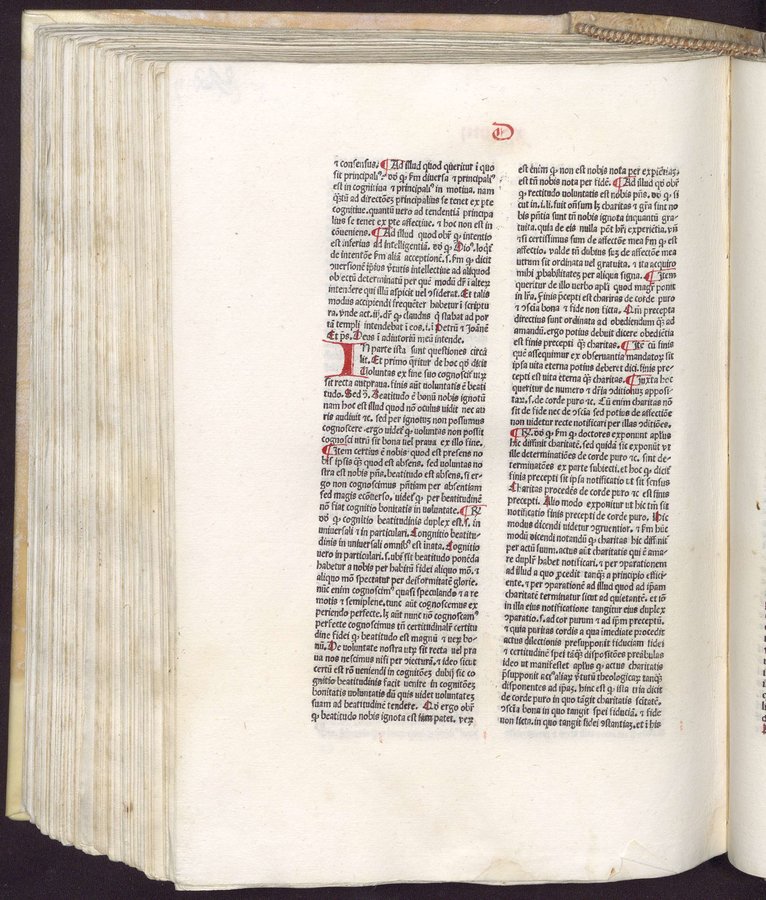 D
⁊ consensus. ¶ Ad illud quod queritur ĩ quo
sit principali⁹.
est in cognitiua ⁊ principali⁹ in motiua. nam
cognitiue. quantũ vero ad tendentiã principa
lius se tenet ex pte affectiue. ⁊ hoc non est in
cõueniens. ¶ Ad illud quod obr̃ ꝙ intentio
est inferius ad intelligentiã.
de intentõe fm aliã acceptionẽ. s. fm ꝙ dicit
obiectũ determinatũ per quẽ modũ
intendere qui illũ aspicit vel ɔsiderat. Et talis
modus accipiendi frequẽter habetur ĩ scriptu
ra.
tũ templi intendebat ĩ eos. i. ĩ Petrũ ⁊ Joãnẽ
Et ps. Deus ĩ adiutoriũ meũ intende.
IN parte ista sunt questiones circa
lr̃e. Et primo q̃ritur de hoc ꝙ dicit
Uoluntas ex fine suo cognoscit̃ utꝝ
sit recta aut praua. finis aũt voluntatis ẽ beati
tudo. Sed ɔ̃. Beatitudo ẽ bonũ nobis ignotũ
nam hoc est illud quod nec oculus uidit nec au
ris audiuit ⁊c. sed per ignotum non possumus
cognoscere. ergo uidet̃ ꝙ voluntas non possit
cognosci utrũ sit bona uel praua ex illo fine.
¶ Item certius ẽ nobis quod est presens no
bis ipsis q̃ȝ quod est absens. sed voluntas no
stra est nobis p̃ns. beatitudo est absens. si er
go non cognoscimus p̃ntiam per absentiam
sed magis econuerso, uidet̃ ꝙ per beatitudinẽ
nõ fiat cognitio bonitatis in voluntate. ¶ R̃.
võ ꝙ cognitio beatitudinis duplex est. s. in
uniuersali ⁊ in particulari. Congnitio beatitu
dinis in uniuersali omnib⁹ est ĩnata. Cognitio
uero in particulari. s. ubi sit beatitudo ponẽda
habetur a nobis per habitũ fidei aliquo mõ. ⁊
aliquo mõ spectatur per deiformitatẽ glorie.
nũc enim cognoscim⁹ quasi speculando ⁊ a re
motis ⁊ semiplene. tunc aũt cognoscemus ex
periendo perfecte. lȝ aũt nunc nõ cognoscam⁹
perfecte cognoscimus tñ certitudinalr̃ certitu
dine fidei ꝙ beatitudo est magnũ ⁊ ueꝝ bo
nũ. De voluntate nostra utꝝ sit recta uel pra
ua nos nescimus nisi per ɔiecturã. ⁊ ideo sicut
certũ est rõ ueniendi in cognitõeȝ dubij sic co
gnitio beatitudinis facit uenire in cognitõeȝ
bonitatis voluntatis dũ quis uidet voluntateȝ
suam ad beatitudinẽ tendere. Qð ergo obr̃
ꝙ beatitudo nobis ignota est iam patet. veꝝ
est enim ꝙ non est nobis nota per exꝑiẽtiaȝ.
est tñ nobis nota per fidẽ. ¶ Ad illud qð obr̃
ꝙ rectitudo voluntatis est nobis p̃ns. võ ꝙ si
cut in. i. li. fuit oñsum lȝ charitas ⁊ gr̃a sunt no
bis p̃ntia sunt tñ nobis ignota inquantũ gra
tuita. quia de eis nulla põt hr̃i experiẽtia. vñ
⁊ si certissimus sum de affectõe mea fm ꝙ est
affectio. valde tñ dubius suȝ de affectõe mea
utrum sit ordinata uel gratuita. ⁊ ita acquiro
mihi ꝓbabilitateȝ per aliqua signa. ¶ Item
queritur de illo uerbo apl̃i quod magr̃ ponit
in lr̃a. Finis p̃cepti est charitas de corde puro
⁊ ɔscia bona ⁊ fide non ficta. Cũ precepta
directius sint ordinata ad obediendum q̃ȝ ad
amandũ. ergo potius debuit dicere obedĩetia
est finis precepti q̃ȝ charitas. ¶ Itẽ cũ finis
quẽ assequimur ex obseruantia mandatoꝝ sit
ipsa uita eterna potius deberet dici. finis pre
cepti est uita eterna q̃ȝ charitas. ¶ Juxta hoc
queritur de numero ⁊ dr̃ia ɔditionuȝ apposi
taꝝ. s. de corde puro ⁊c. Cũ enim charitas nõ
sit de fide nec de ɔscia sed potius de affectiõe
non uidetur recte notificari per illas ɔditiões.
¶ R̃. võ ꝙ fm ꝙ doctores exponunt apl̃us
hic diffinit charitatẽ. sed quidã sic exponũt ut
ille determinatiões de corde puro ⁊c. sint de
terminatões ex parte subiecti. et hoc ꝙ dicit̃
finis precepti sit ipsa notificatio ut sit sensus
Charitas procedẽs de corde puro ⁊c est finis
precepti. Alio modo exponitur ut hic tm̃ sit
notificatio finis precepti de corde puro. Hic
modus dicendi uidetur ɔgruentior. ⁊ fm hũc
modũ dicendi notandũ ꝙ charitas hic diffinit̃
per actũ suum. actus aũt charitatis qui ẽ ama
re dupl̃r habet notificari. ⁊ per ɔparationem
ad illud a quo ꝓcedit tanq̃ȝ a principio effici
ente. ⁊ per ɔparationẽ ad illud quod ad ipsam
charitatẽ terminatur sicut ad quietantẽ. et iõ
in illa eius notificatione tangitur eius duplex
ɔparatio. s. ad cor purum ⁊ ad ip̃m preceptũ.
⁊ quia puritas cordis a qua immediate procedit
actus dilectionis presupponit fiduciam fidei
⁊ certitudinẽ spei tãq̃ȝ dispositiões preãbulas
ideo ut manifestet apl̃us ꝙ actus charitatis
p̃supponit act⁹ aliaꝝ v̓tutũ theologicaꝝ tanq̃ȝ
disponentes ad ipsaȝ. hinc est ꝙ ista tria dicit
de corde puro in quo tãgit charitatis scitatẽ.
⁊ ɔscia bona in quo tangit spei fiduciã. ⁊ fide
non ficta. in quo tangit fidei ɔstantiaȝ. et ĩ his